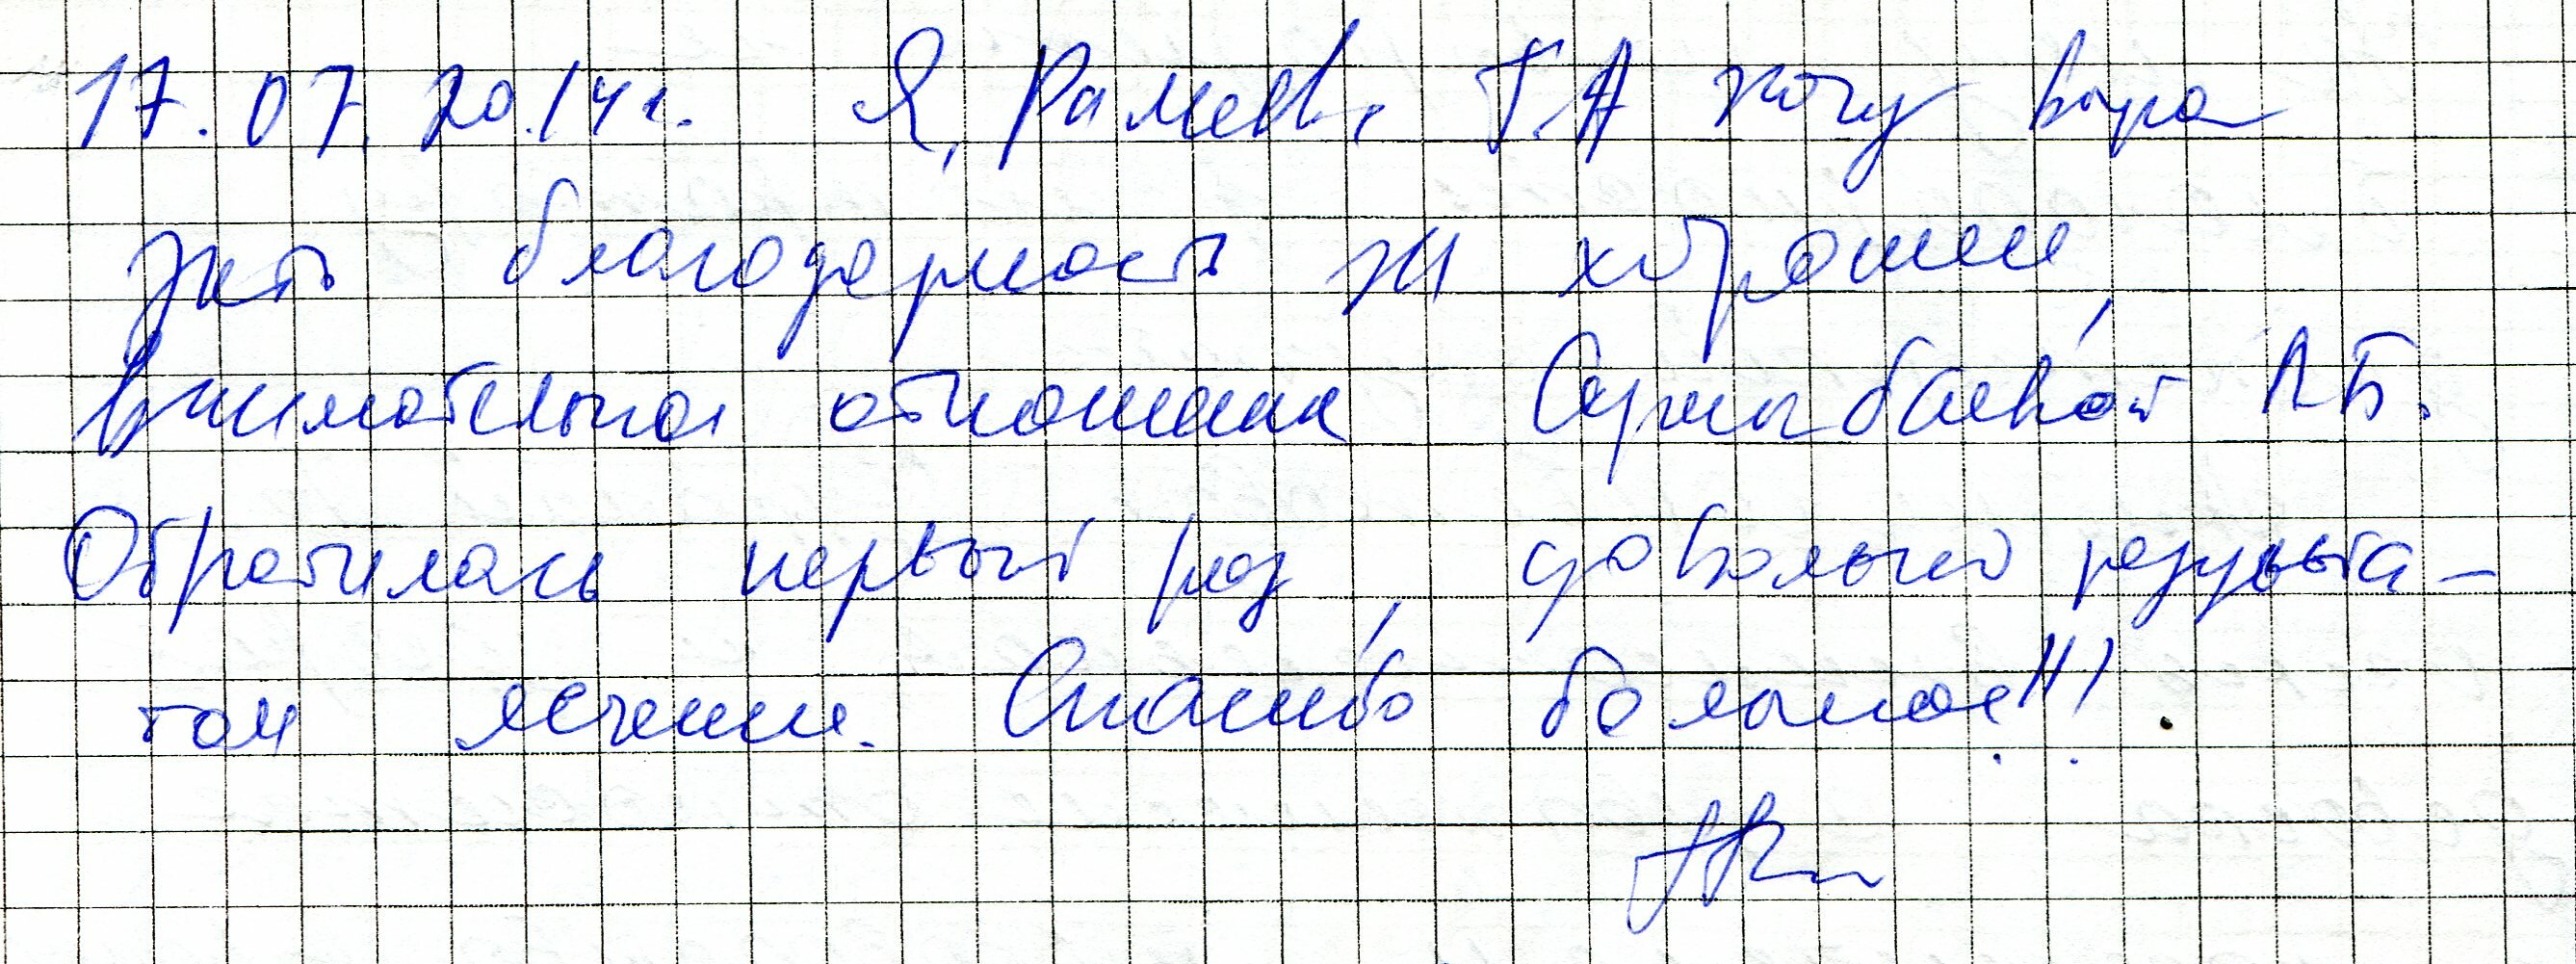 17.07.2014г. Я, Рамев Г.А хочу выра
зить благодарность за хорошее,
внимательное отношение Сармыбаевой Л.Б.
Обратилась первый раз, довольно результа-
том лечении. Спасибо большое!!!